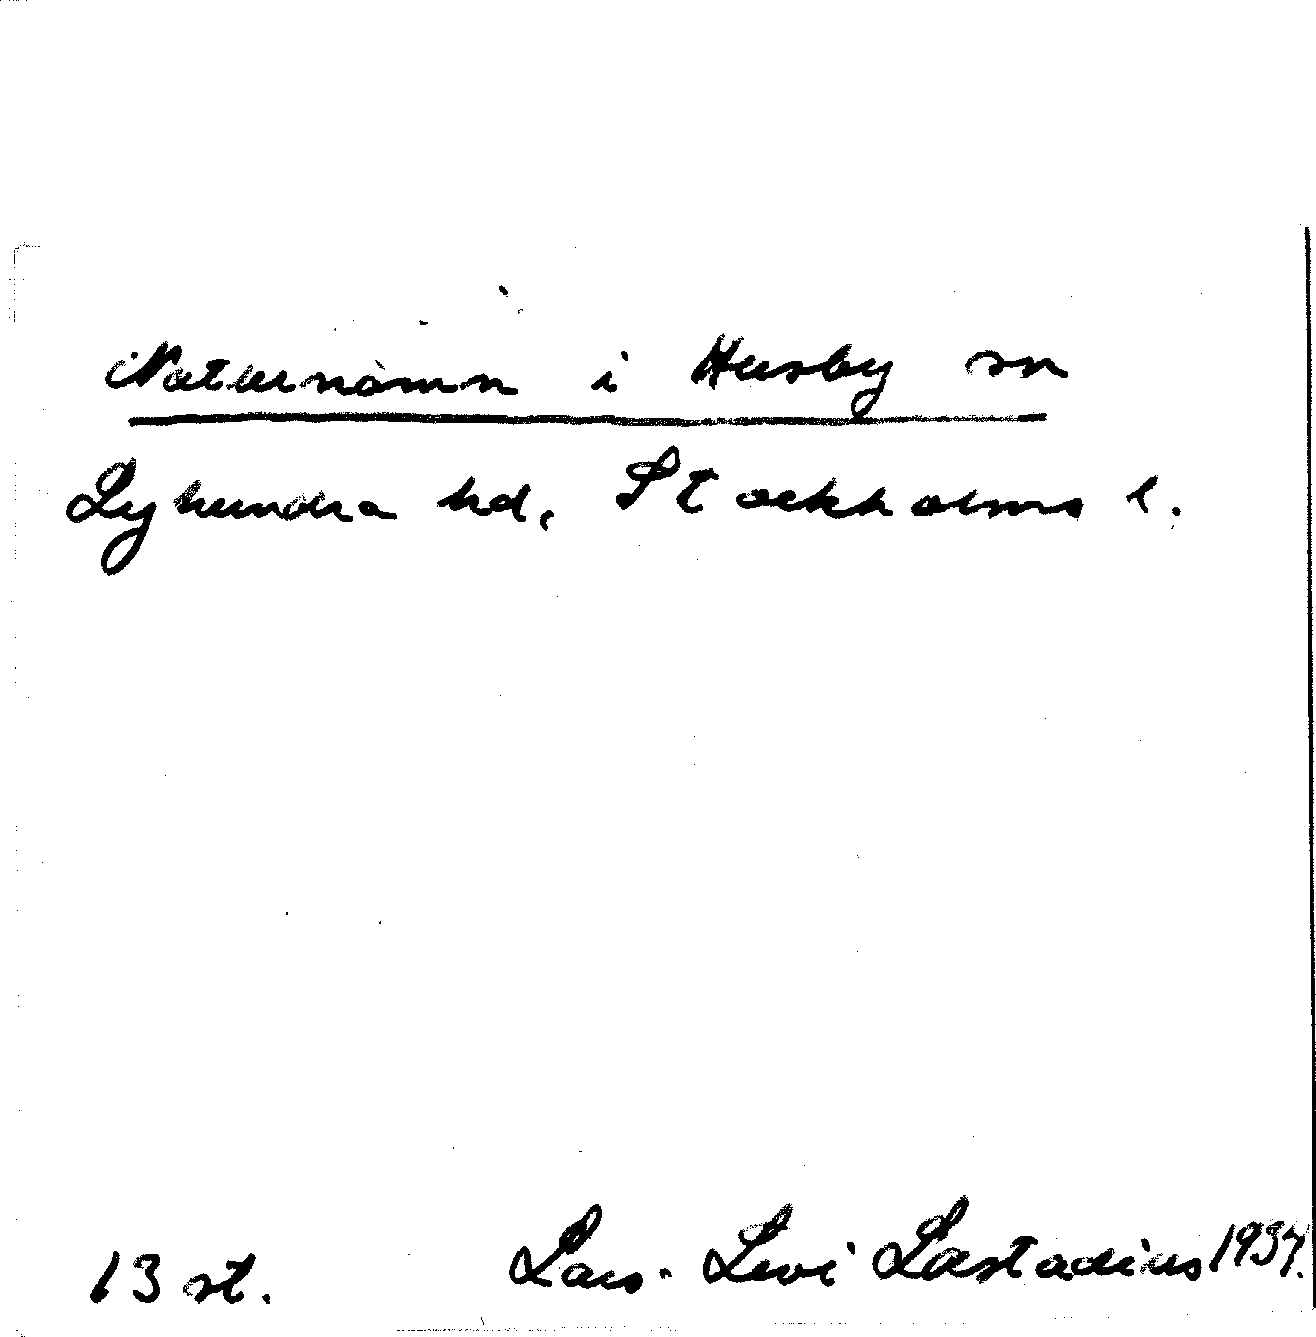 Naturnamn i Husby sn
Lyhundra hd, Stockholms l.
13 st. Lars-Levi Læstadius 1937.